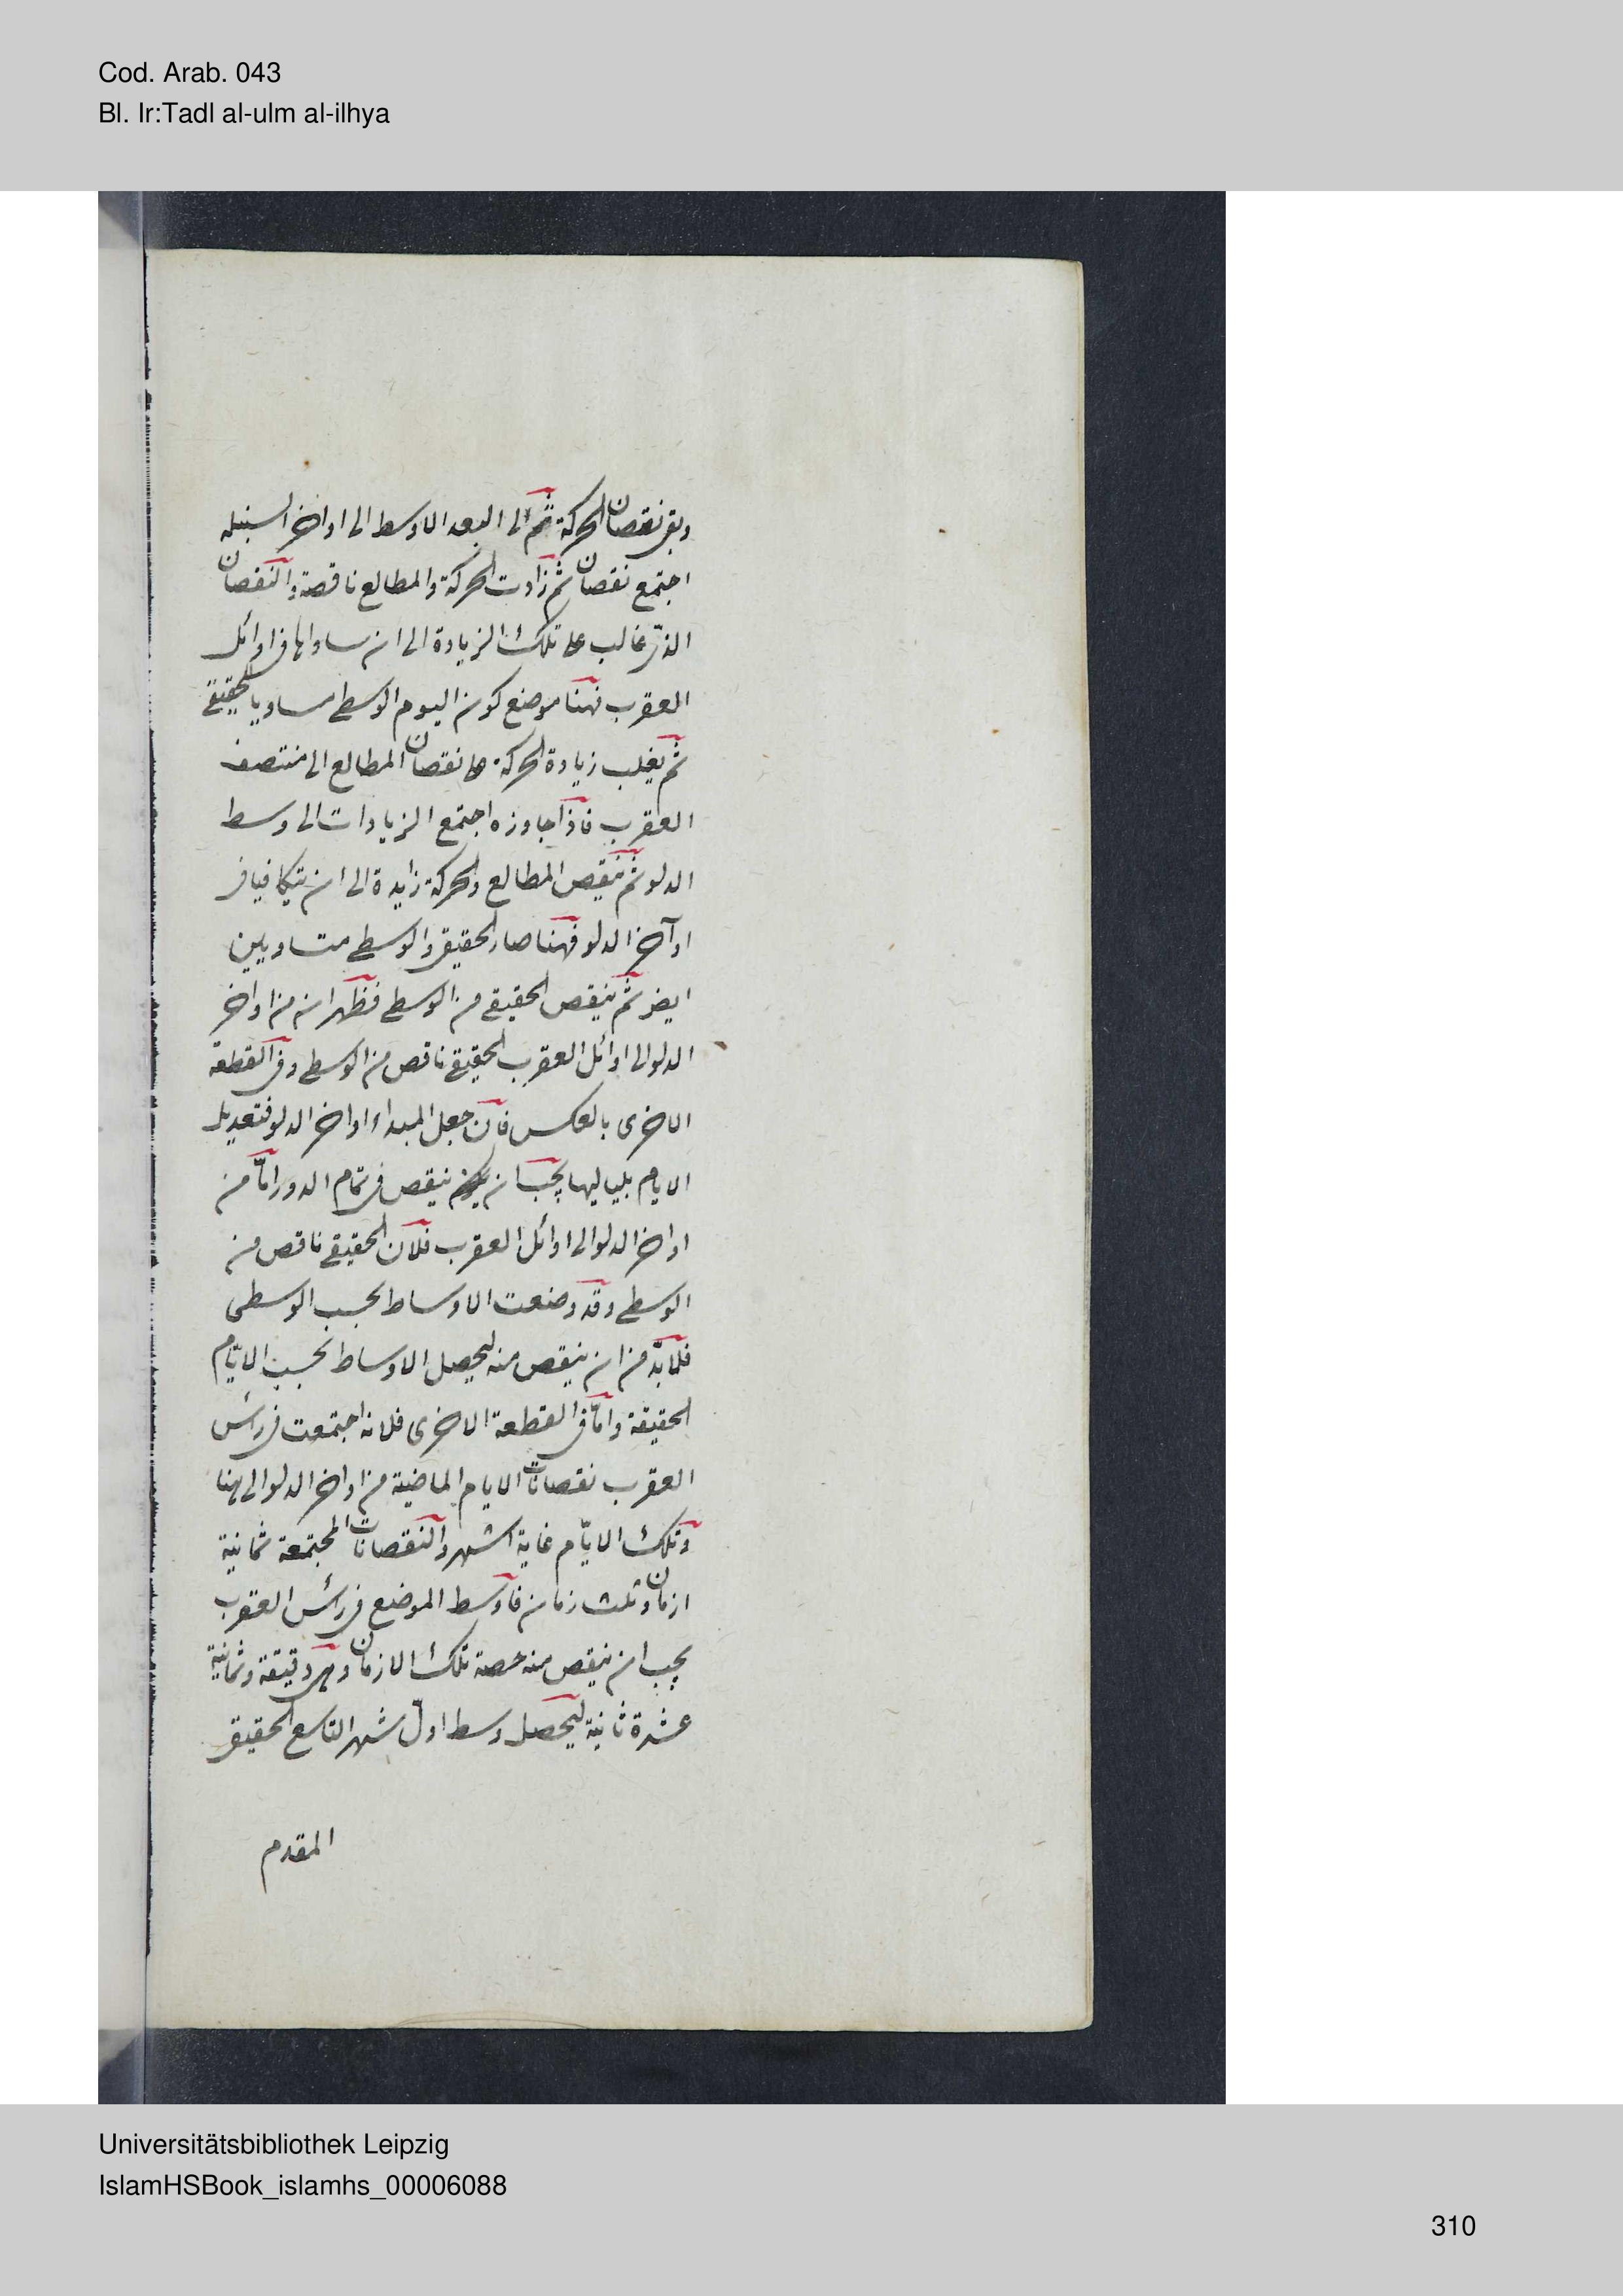 Cod. Arab. 043
Bl. Ir:Tadl al-ulm al-ilhya
وبقى نقصان الحركة ثم الى البعد الاوسط الى اواخر السنبله
اجتمع نقصان ثم زادت الحركة والمطالع ناقصة والنقصان
الذى غالب على تلك الزيادة الى ان ساواها فى اوائل
العقرب فهنا موضع كون اليوم الوسطى مساويا للحقيقى
ثم يغلب زيادة الحركة على نقصان المطالع الى منتصف
العقرب فاذا جاوزه اجتمع الزيادات الى وسط
الدلو ثم تنقص المطالع والحركة زايدة الى ان يتكافيا فى
اواخر الدلو فهنا صار الحقيقى والوسطى متساويين
ايضا ثم ينقص الحقيقى من الوسطى فظهر ان من اواخر
الدلو الى اوائل العقرب الحقيقى ناقص من الوسطى وفى القطعة
الاخرى بالعكس فان جعل المبداء اواخر الدلو فتعديل
الايام بلياليها يجب ان ينقص فى تمام الدور اما من
اواخر الدلو الى اوائل العقرب فلان الحقيقى ناقص من
الوسطى وقد وضعت الاوساط بحسب الوسطى
فلابد من ان ينقص منه ليحصل الاوساط بحسب الايام
الحقيقة واما فى القطعة الاخرى فلانه اجتمعت فى رأس
العقرب نقصانات الايام الماضية من اواخر الدلو الى هنا
وتلك الايام غاية اشهر والنقصانات المجتمعة ثمانية
ازمان وثلث زمان فاوسط الموضع فى رأس العقرب
يجب ان ينقص منه حصة تلك الازمان وهى دقيقة وثمانية
عشرة ثانية ليحصل وسط اول شهر التاسع الحقيقى
المقدم
Universitätsbibliothek Leipzig
IslamHSBook_islamhs_00006088
310